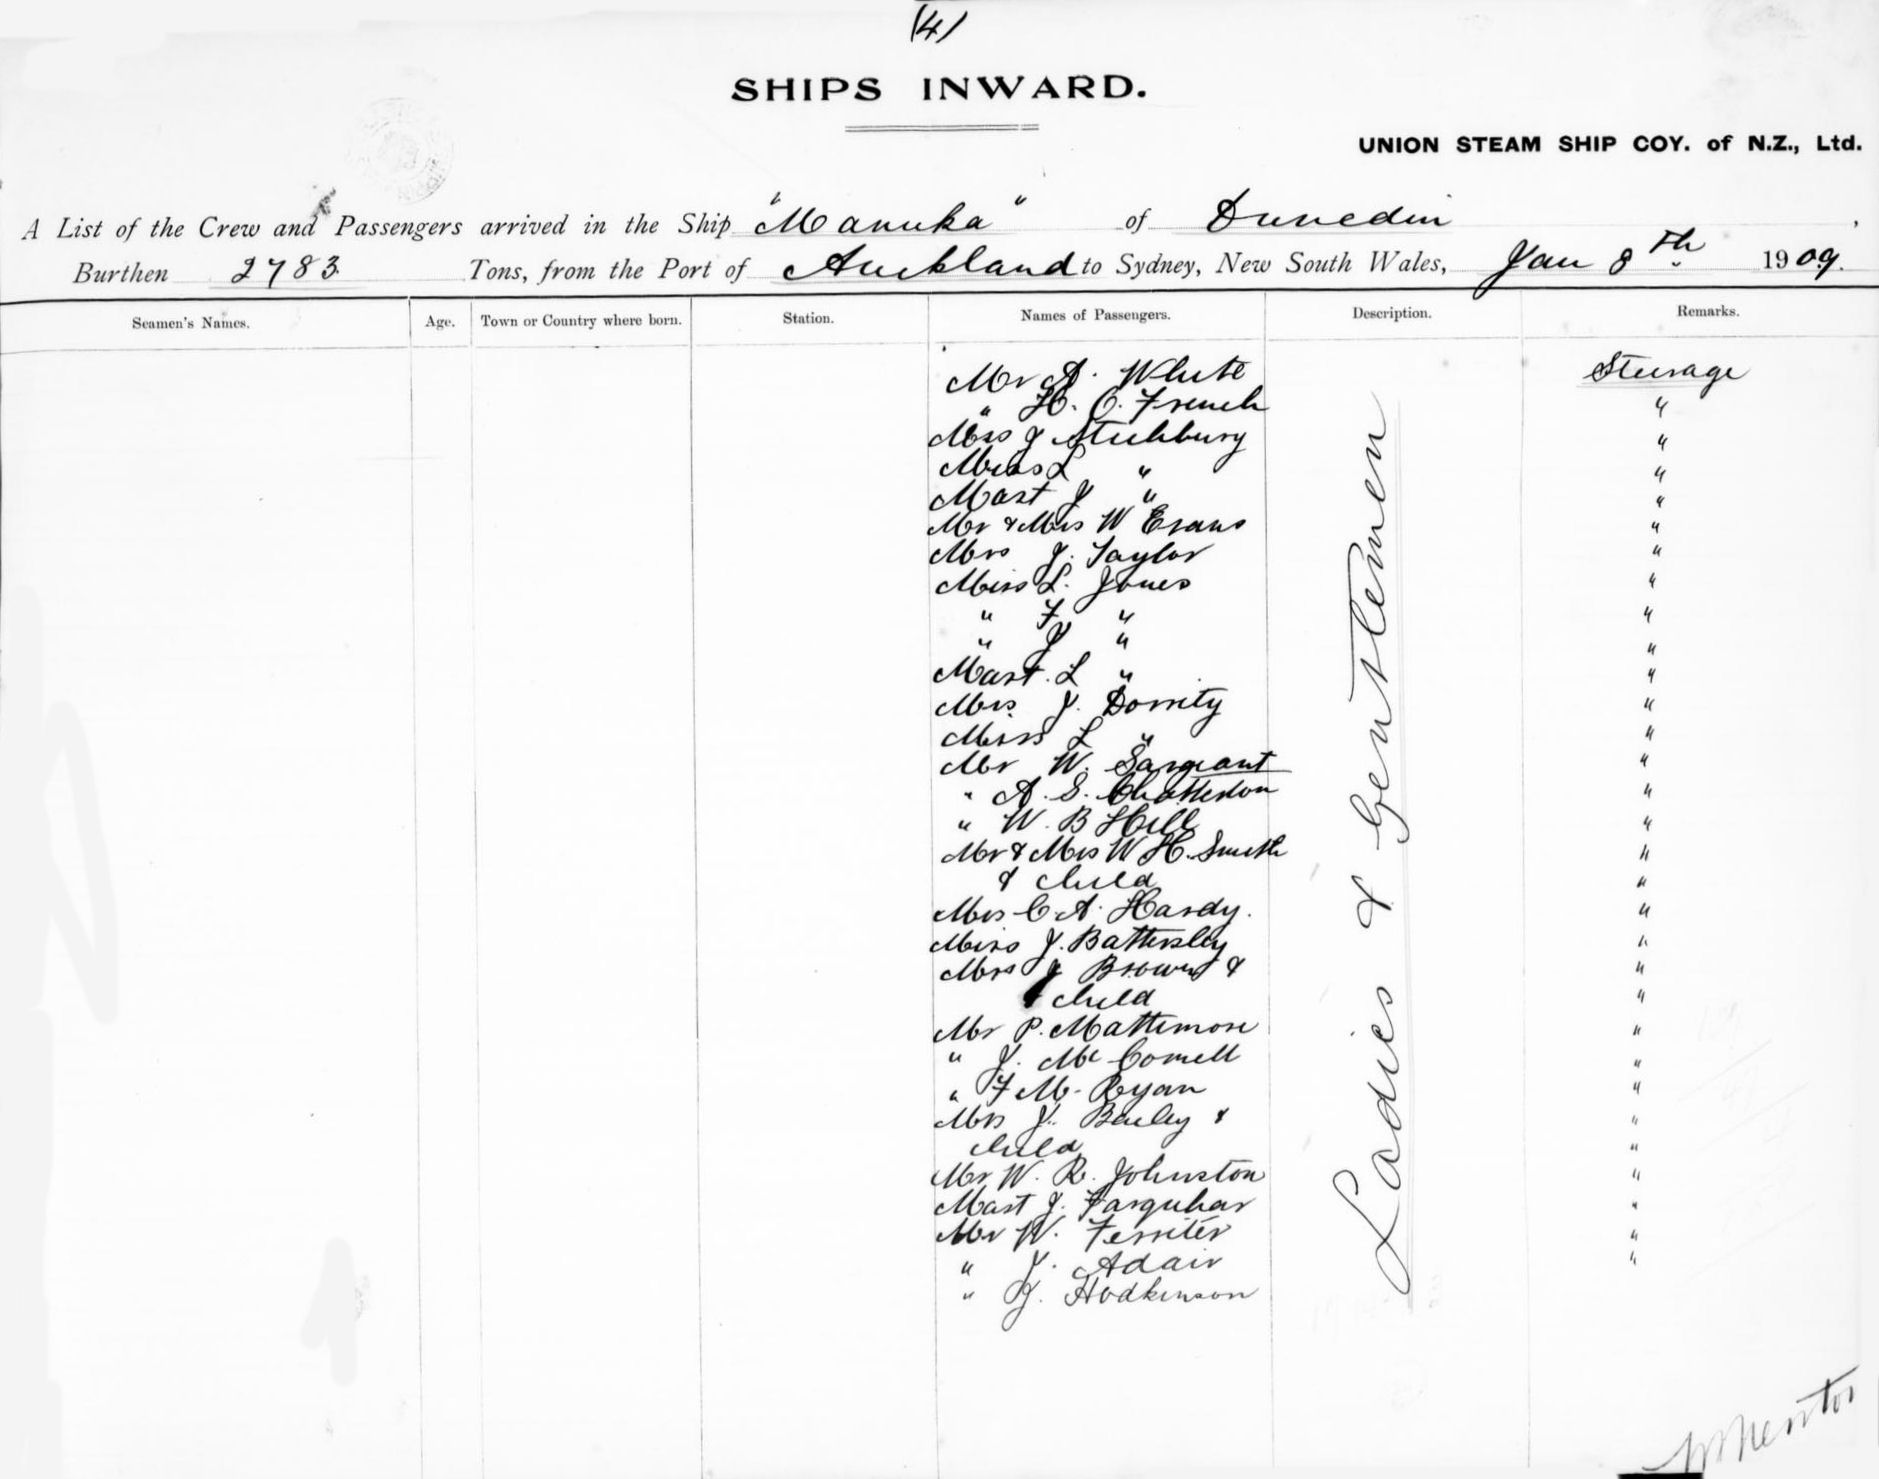 (4)
SHIPS INWARD.
UNION STEAM SHIP COY. of N.Z., Ltd.
A List of the Crew and Passengers arrived in the Ship "Manuka" of Dunedin,
Burthen 2783 Tons, from the Port of Auckland to Sydney, New South Wales, Jan 8th 1909.
Seamen's Names. Age. Town or Country where born. Station. Names of Passengers. Description. Remarks.
Mr A. White Steerage
" H. C. French "
Mrs J Stichbury "
Miss L " "
Mast J " "
Mr & Mrs W Evans "
Mrs J. Taylor "
Miss L. Jones "
" F " "
" J " "
Mast. L " "
Mrs. J. Dorrity "
Miss L " "
Mr W. Sargeant "
" A. S. Chatterton "
" W. B Hill "
Mr & Mrs W H. Smith "
& child "
Mrs C A. Hardy. "
Miss J. Battersley "
Mrs J Brown & "
child "
Mr P. Mattimore "
" J. Mc Connell "
" F M. Ryan "
Mrs J. Bailey & "
child "
Mr W. R. Johnston "
Mast J. Farquhar "
Mr W. Ferriter "
" J. Adair "
" J. Hodkinson
Ladies & Gentlemen